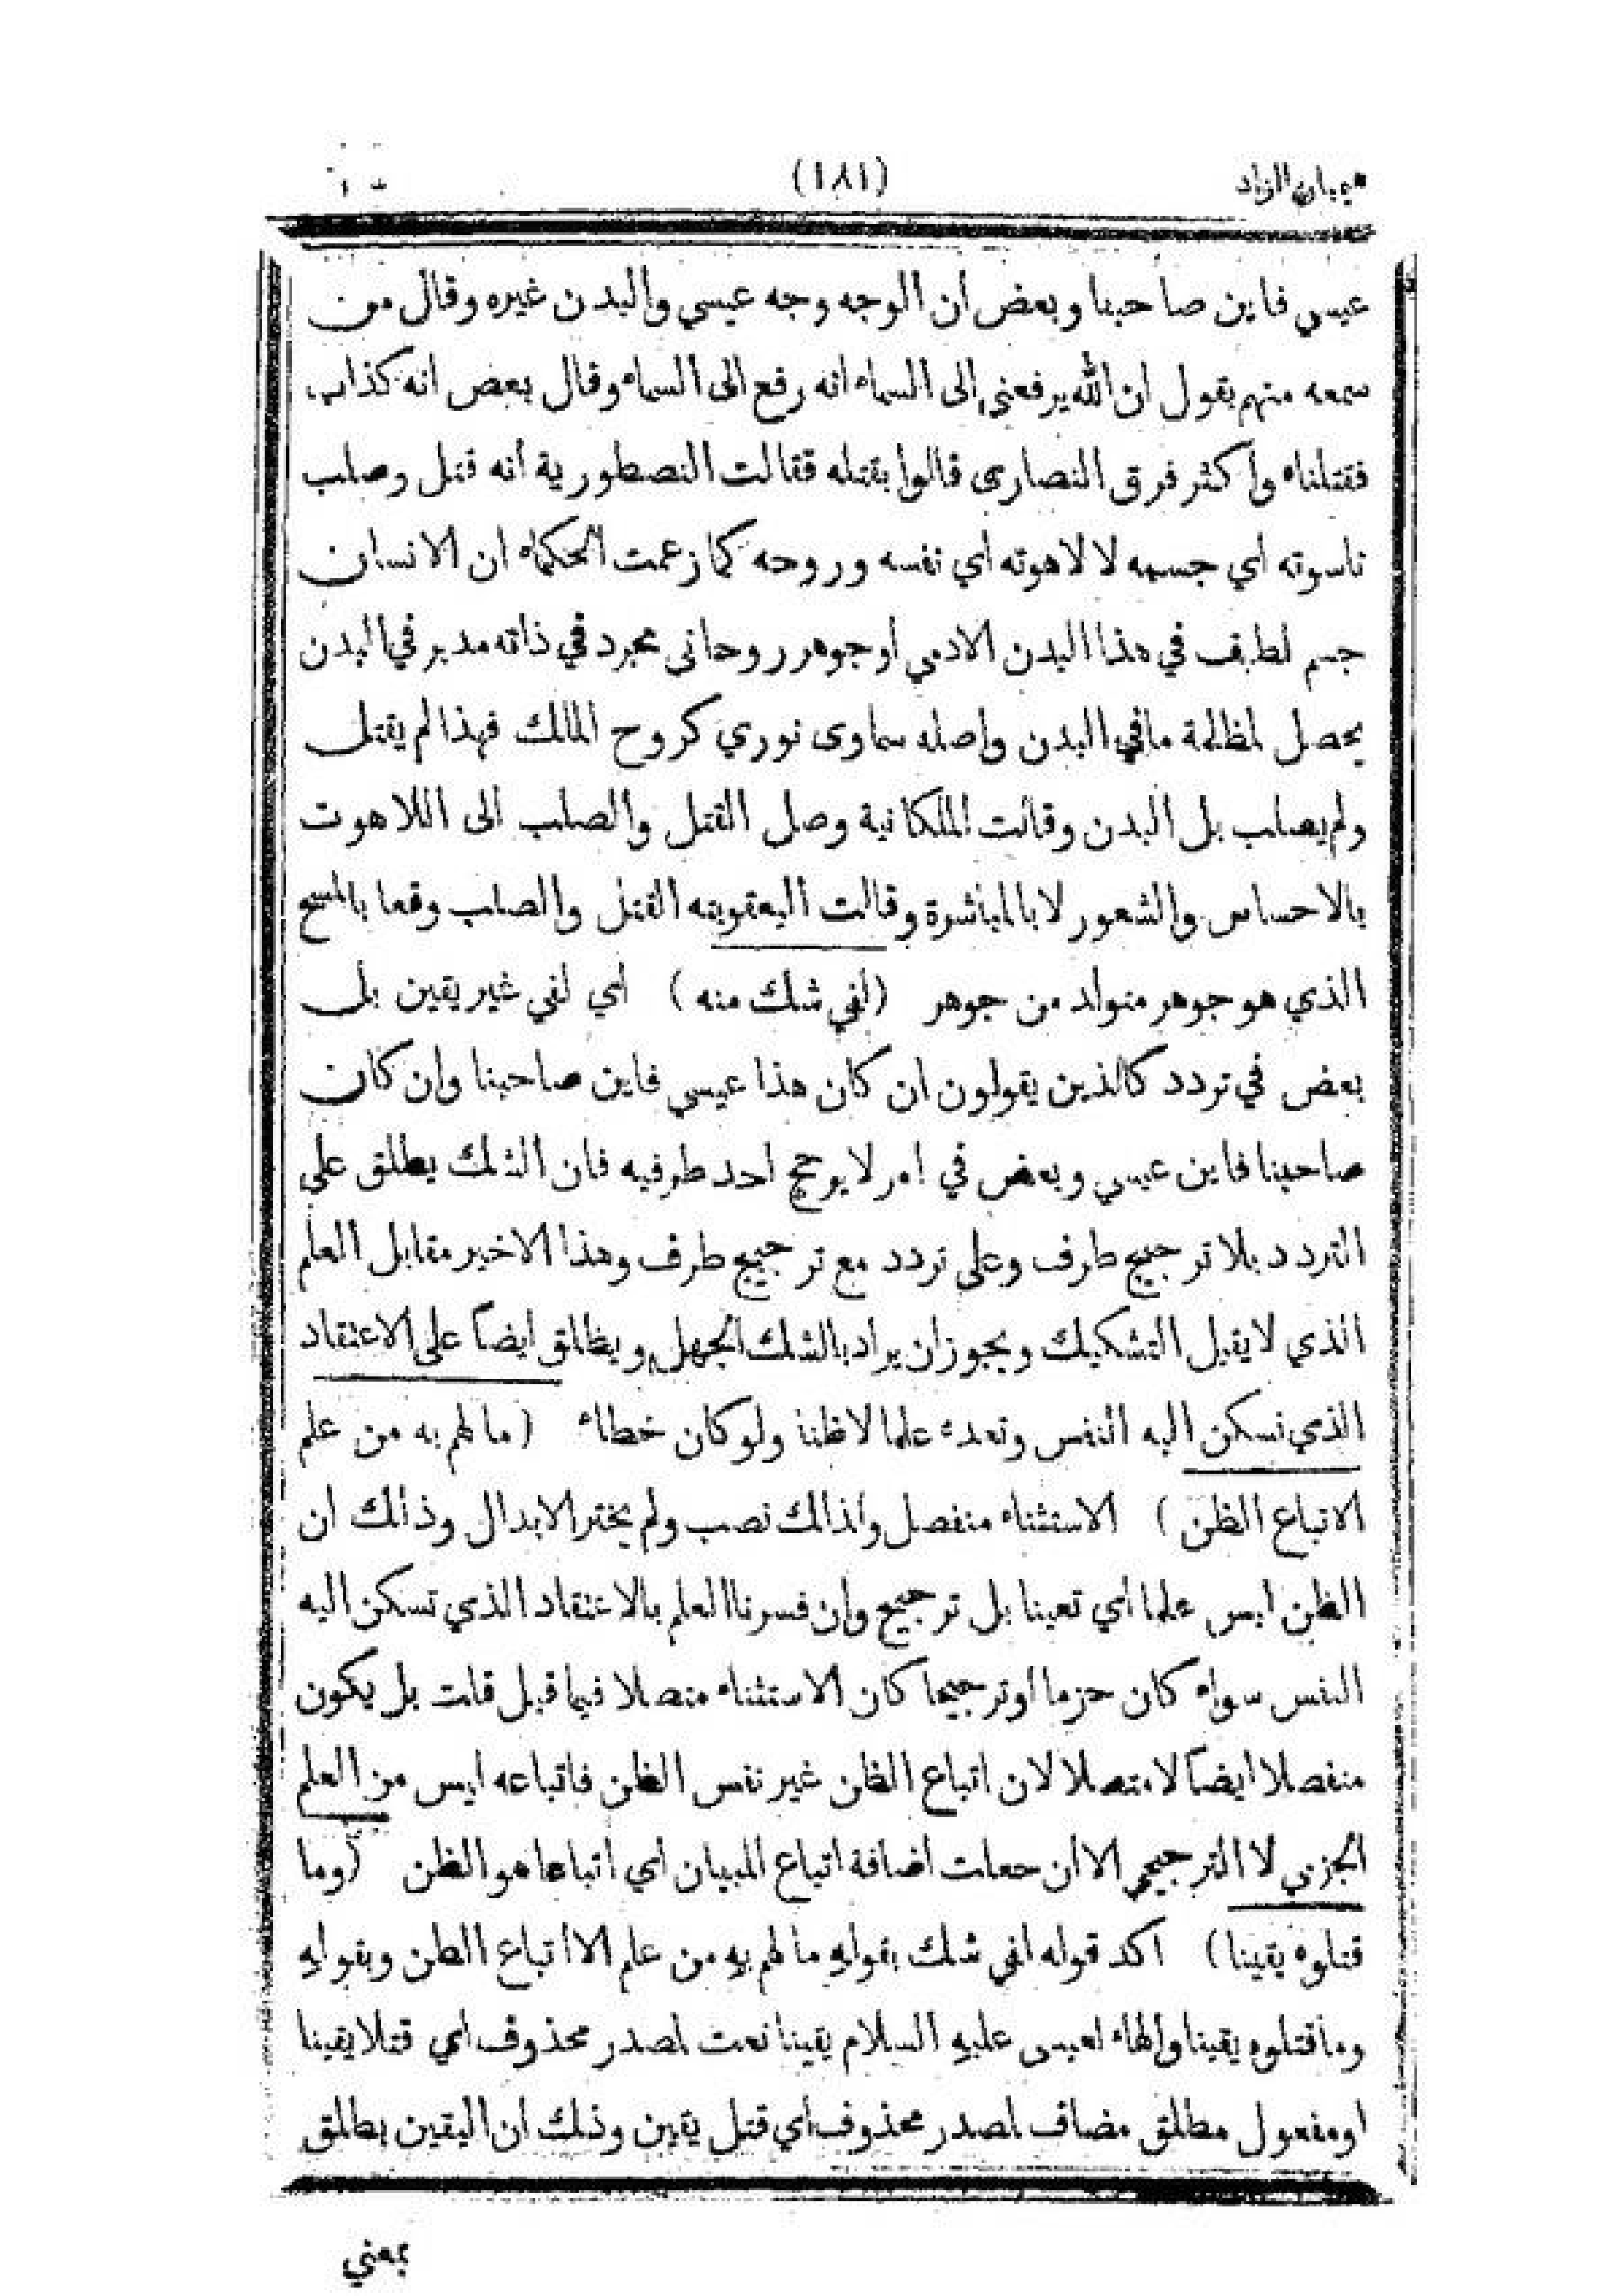 هيميان الزاد
(١٨١)
عيسي فاين صاحبنا وبعض أن الوجه وجه عيسي والبدن غيره وقال من
سمعه منهم يقول ان الله يرفعني إلى السماء انه رفع الى السماء وقال بعض انه كذاب
فقتلناه وأكثر فرق النصارى قالوا بقتله فقالت النصطورية أنه قتل وصلب
ناسوته اي جسمه لا لاهوته أي نفسه وروحه كما زعمت الحكماء ان الانسان
جسم لطيف في هذا البدن الادمي أو جوهر روحاني مجرد في ذاته مدبر في البدن
يحصل لمظالمة ما في البدن واصله سماوى نوري كروح المالك فهذا لم يقتل
ولم يصلب بل البدن وقالت الملكانية وصل القتل والصلب الى اللاهوت
بالاحساس والشعور لا بالمباشرة وقالت اليعقوبيه القتل والصلب وقعا بالمسيح
الذي هو جوهر متولد من جوهر (لفي شك منه) اي لفي غير يقين بل
بعض في تردد كالذين يقولون ان كان هذا عيسي فاين صاحبنا وان كان
صاحبنا فاين عيسي وبعض في امر لا يرجح احد طرفيه فان الشك يطلق علي
التردد بلا ترجيح طرف وعلى تردد مع ترجيح طرف وهذا الاخير مقابل العلم
الذي لا يقبل التشكيك ويجوز ان يراد بالشك الجهل ويطلق ايضاً على الاعتقاد
الذي تسكن اليه النفس وتعده علما لا ظنا ولو كان خطاء (ما لهم به من علم
الا تباع الظن) الاستثناء منفصل ولذالك نصب ولم يختر الابدال وذالك ان
الظن ليس علما أي تعينا بل ترجيح وان فسرنا العلم بالاعتقاد الذي تسكن اليه
النفس سواء كان حزما او ترجيحا كان الاستثناء متصلا فيما قبل قلت بل يكون
منفصلا ايضاً لا متصلا لان اتباع الظن غير نفس الظن فاتباعه ليس من العلم
الجزمي لا الترجيحي الا أن جعلت اضافة اتباع للبيان اي اتباعا هو الظن (وما
قتلوه يقينا) اكد قوله لفي شك بقوله ما لهم به من علم الا اتباع الظن وبقوله
وما قتلوه يقينا والهاء لعيسى عليه السلام يقينا نعت لمصدر محذوف اي قتلا يقينا
او مفعول مطلق مضاف لمصدر محذوف اي قتل يقين وذلك ان اليقين يطلق
بمعني